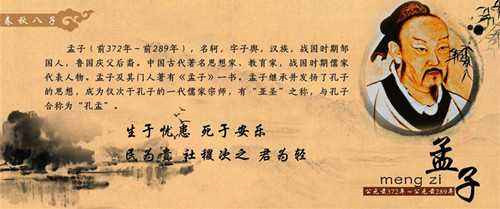 春秋八子
孟子（前372年－前289年），名轲，字子舆，汉族，战国时期邹
国人，鲁国庆父后裔。中国古代著名思想家、教育家，战国时期儒家
代表人物。孟子及其门人著有《孟子》一书。孟子继承并发扬了孔子
的思想，成为仅次于孔子的一代儒家宗师，有“亚圣”之称，与孔子
合称为“孔孟”。
生于忧患 死于安乐
民为贵 社稷次之 君为轻
孟子
meng zi
公元前372年～公元前289年